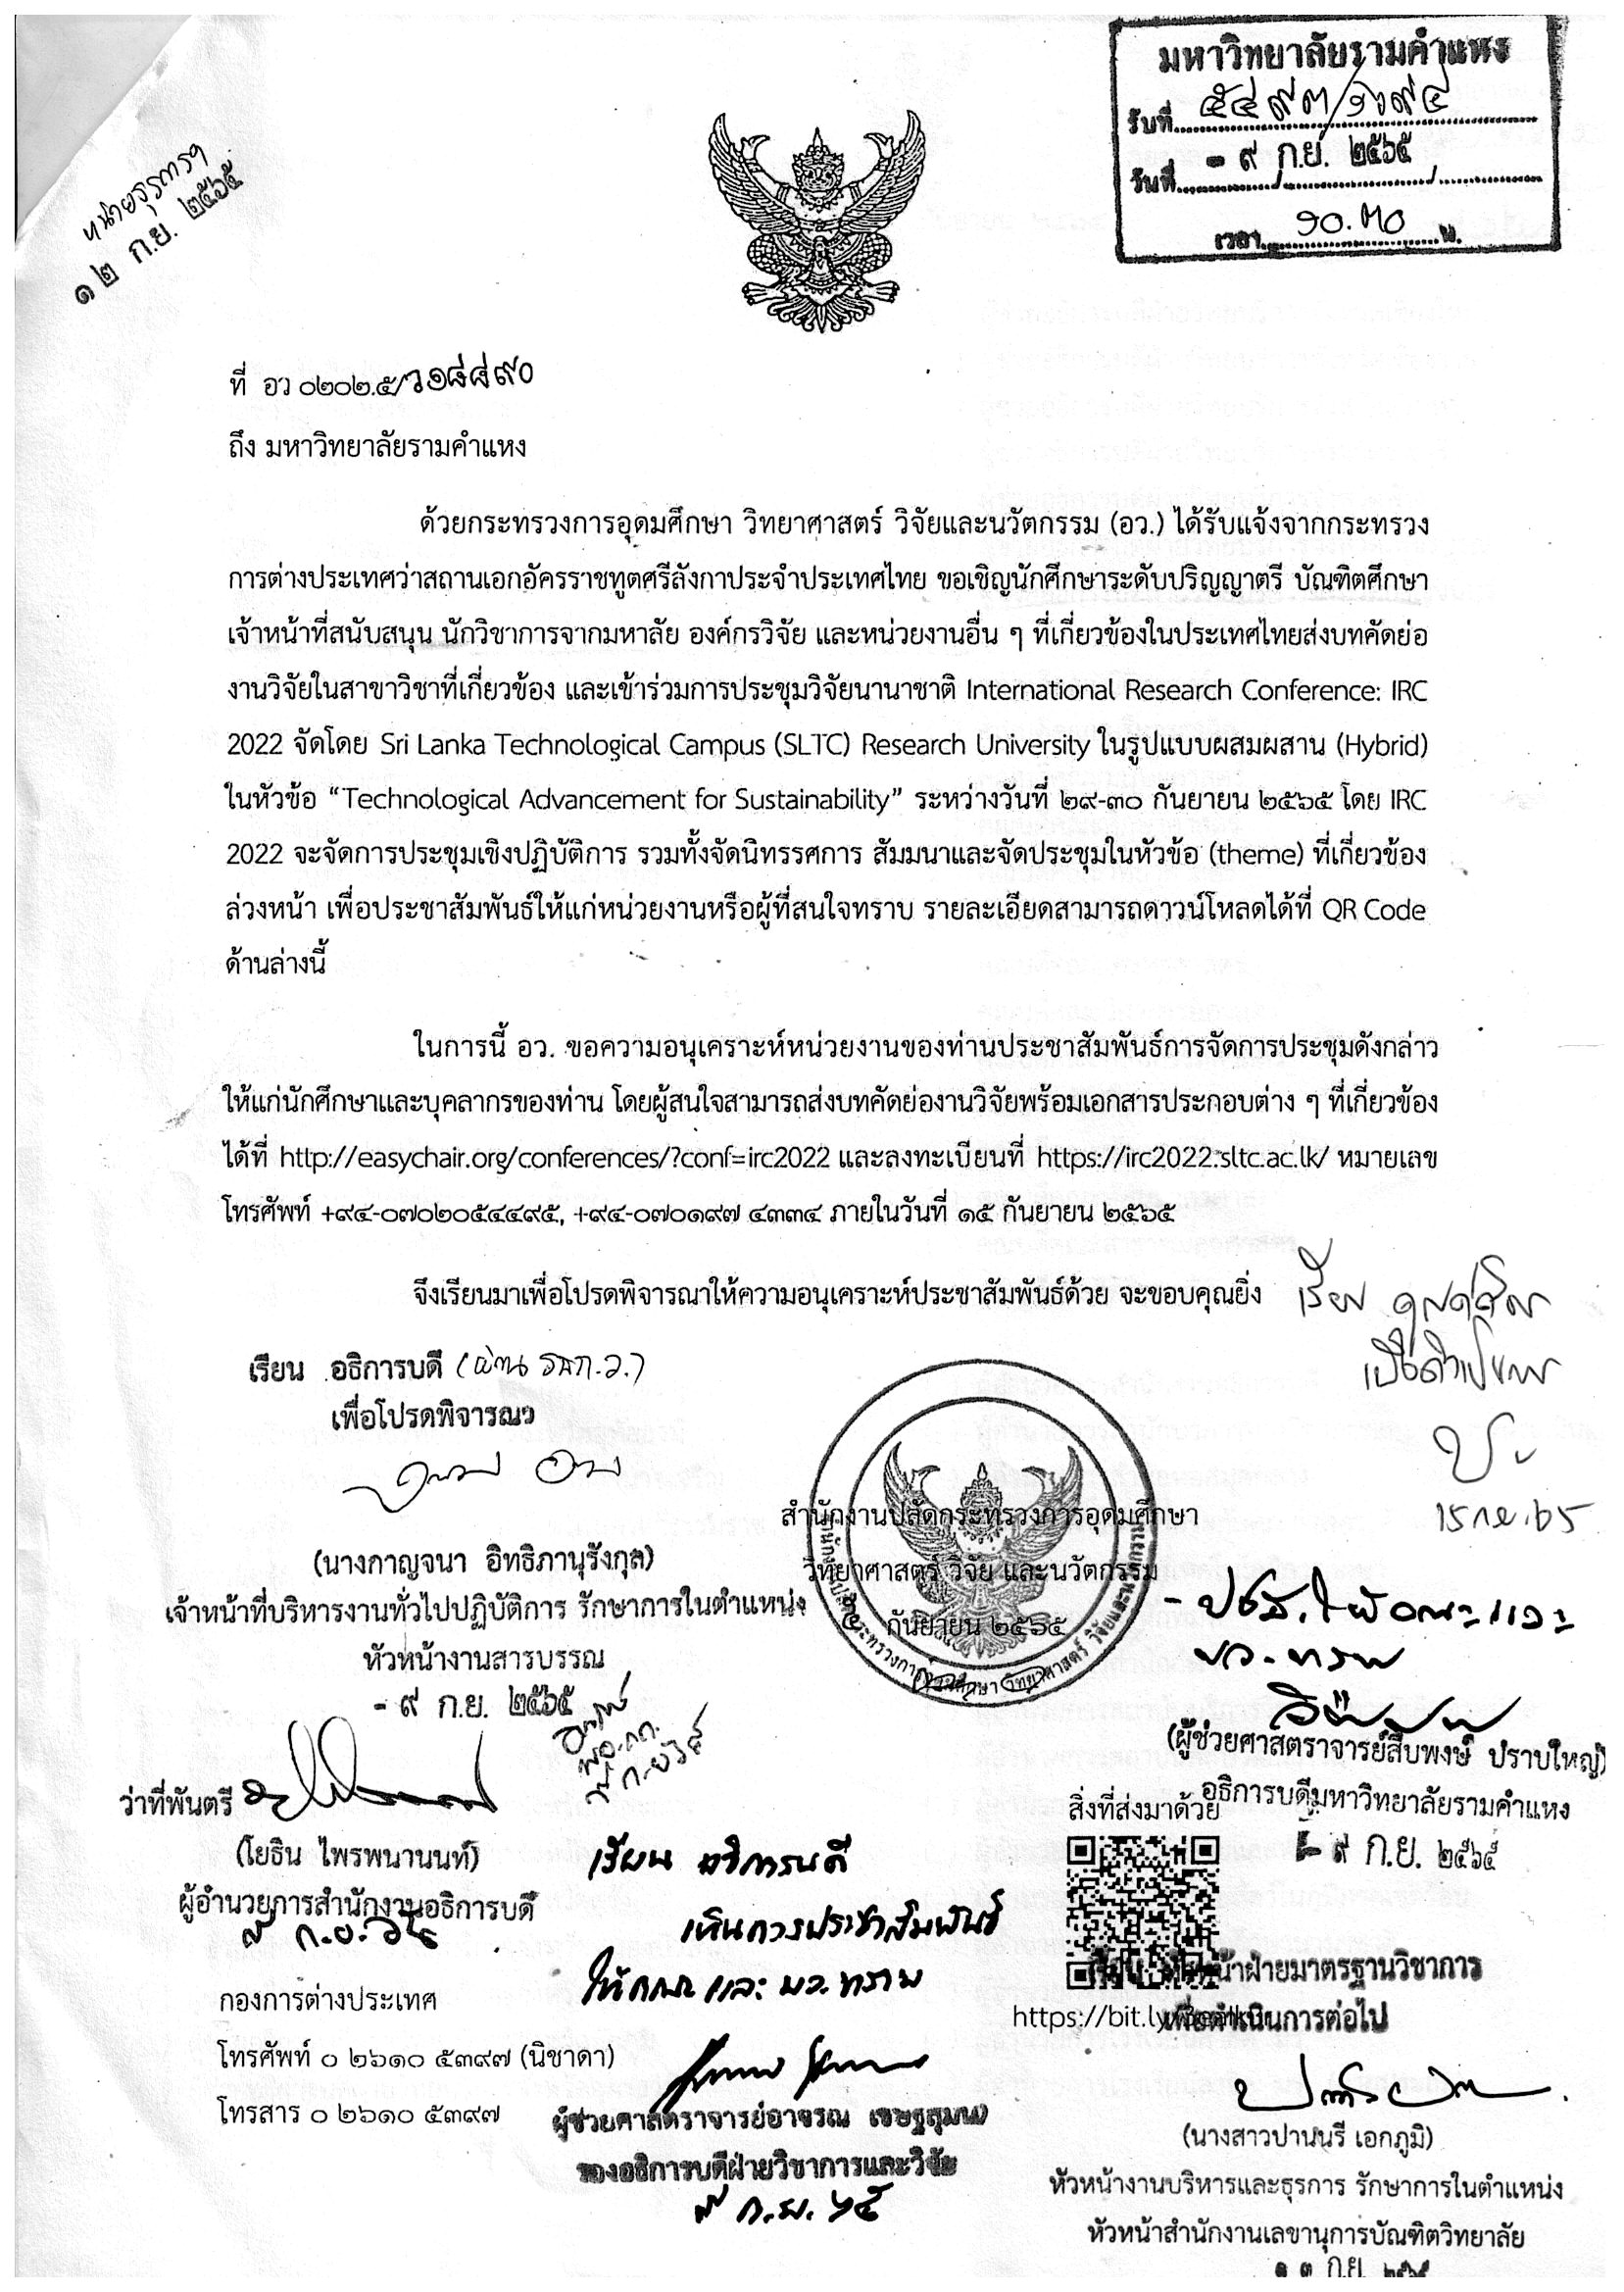 มหาวิทยาลัยรามคำแหง
รับที่
วันที่ - ๙ ก.ย. ๒๕๖๕
เวลา ๑๐.๓๐ น.
๑๒ ก.ย. ๒๕๖๕
ที่ อว ๐๒๐๒.๕/ว๑๘๘๙๐
ถึง มหาวิทยาลัยรามคำแหง
ด้วยกระทรวงการอุดมศึกษา วิทยาศาสตร์ วิจัยและนวัตกรรม (อว.) ได้รับแจ้งจากกระทรวง
การต่างประเทศว่าสถานเอกอัครราชทูตศรีลังกาประจำประเทศไทย ขอเชิญนักศึกษาระดับปริญญาตรี บัณฑิตศึกษา
เจ้าหน้าที่สนับสนุน นักวิชาการจากมหาลัย องค์กรวิจัย และหน่วยงานอื่น ๆ ที่เกี่ยวข้องในประเทศไทยส่งบทคัดย่อ
งานวิจัยในสาขาวิชาที่เกี่ยวข้อง และเข้าร่วมการประชุมวิจัยนานาชาติ International Research Conference: IRC
2022 จัดโดย Sri Lanka Technological Campus (SLTC) Research University ในรูปแบบผสมผสาน (Hybrid)
ในหัวข้อ “Technological Advancement for Sustainability” ระหว่างวันที่ ๒๙-๓๐ กันยายน ๒๕๖๕ โดย IRC
2022 จะจัดการประชุมเชิงปฏิบัติการ รวมทั้งจัดนิทรรศการ สัมมนาและจัดประชุมในหัวข้อ (theme) ที่เกี่ยวข้อง
ล่วงหน้า เพื่อประชาสัมพันธ์ให้แก่หน่วยงานหรือผู้ที่สนใจทราบ รายละเอียดสามารถดาวน์โหลดได้ที่ QR Code
ด้านล่างนี้
ในการนี้ อว. ขอความอนุเคราะห์หน่วยงานของท่านประชาสัมพันธ์การจัดการประชุมดังกล่าว
ให้แก่นักศึกษาและบุคลากรของท่าน โดยผู้สนใจสามารถส่งบทคัดย่องานวิจัยพร้อมเอกสารประกอบต่าง ๆ ที่เกี่ยวข้อง
ได้ที่ http://easychair.org/conferences/?conf=irc2022 และลงทะเบียนที่ https://irc2022.sltc.ac.lk/ หมายเลข
โทรศัพท์ +๙๔-๐๗๐๒๐๕๔๔๙๕, +๙๔-๐๗๐๑๙๗ ๔๓๓๔ ภายในวันที่ ๑๕ กันยายน ๒๕๖๕
จึงเรียนมาเพื่อโปรดพิจารณาให้ความอนุเคราะห์ประชาสัมพันธ์ด้วย จะขอบคุณยิ่ง
เรียน อธิการบดี
เพื่อโปรดพิจารณา
สำนักงานปลัดกระทรวงการอุดมศึกษา
วิทยาศาสตร์ วิจัย และนวัตกรรม
กันยายน ๒๕๖๕
(นางกาญจนา อิทธิภานุรังกุล)
เจ้าหน้าที่บริหารงานทั่วไปปฏิบัติการ รักษาการในตำแหน่ง
หัวหน้างานสารบรรณ
- ๙ ก.ย. ๒๕๖๕
ว่าที่พันตรี
(โยธิน ไพรพนานนท์)
ผู้อำนวยการสำนักงานอธิการบดี
(ผู้ช่วยศาสตราจารย์สืบพงษ์ ปราบใหญ่)
อธิการบดีมหาวิทยาลัยรามคำแหง
๙ ก.ย. ๒๕๖๕
สิ่งที่ส่งมาด้วย
เรียน อธิการบดี
เห็นควรประชาสัมพันธ์
ให้คณะ และ มร. ทราบ
หัวหน้าฝ่ายมาตรฐานวิชาการ
เพื่อดำเนินการต่อไป
https://bit.ly/
กองการต่างประเทศ
โทรศัพท์ ๐ ๒๖๑๐ ๕๓๙๗ (นิชาดา)
โทรสาร ๐ ๒๖๑๐ ๕๓๙๗
ผู้ช่วยศาสตราจารย์อาจรณ เชษฐสุมน
รองอธิการบดีฝ่ายวิชาการและวิจัย
๙ ก.ย. ๖๕
(นางสาวปานนรี เอกภูมิ)
หัวหน้างานบริหารและธุรการ รักษาการในตำแหน่ง
หัวหน้าสำนักงานเลขานุการบัณฑิตวิทยาลัย
๑๓ ก.ย. ๒๕๖๕